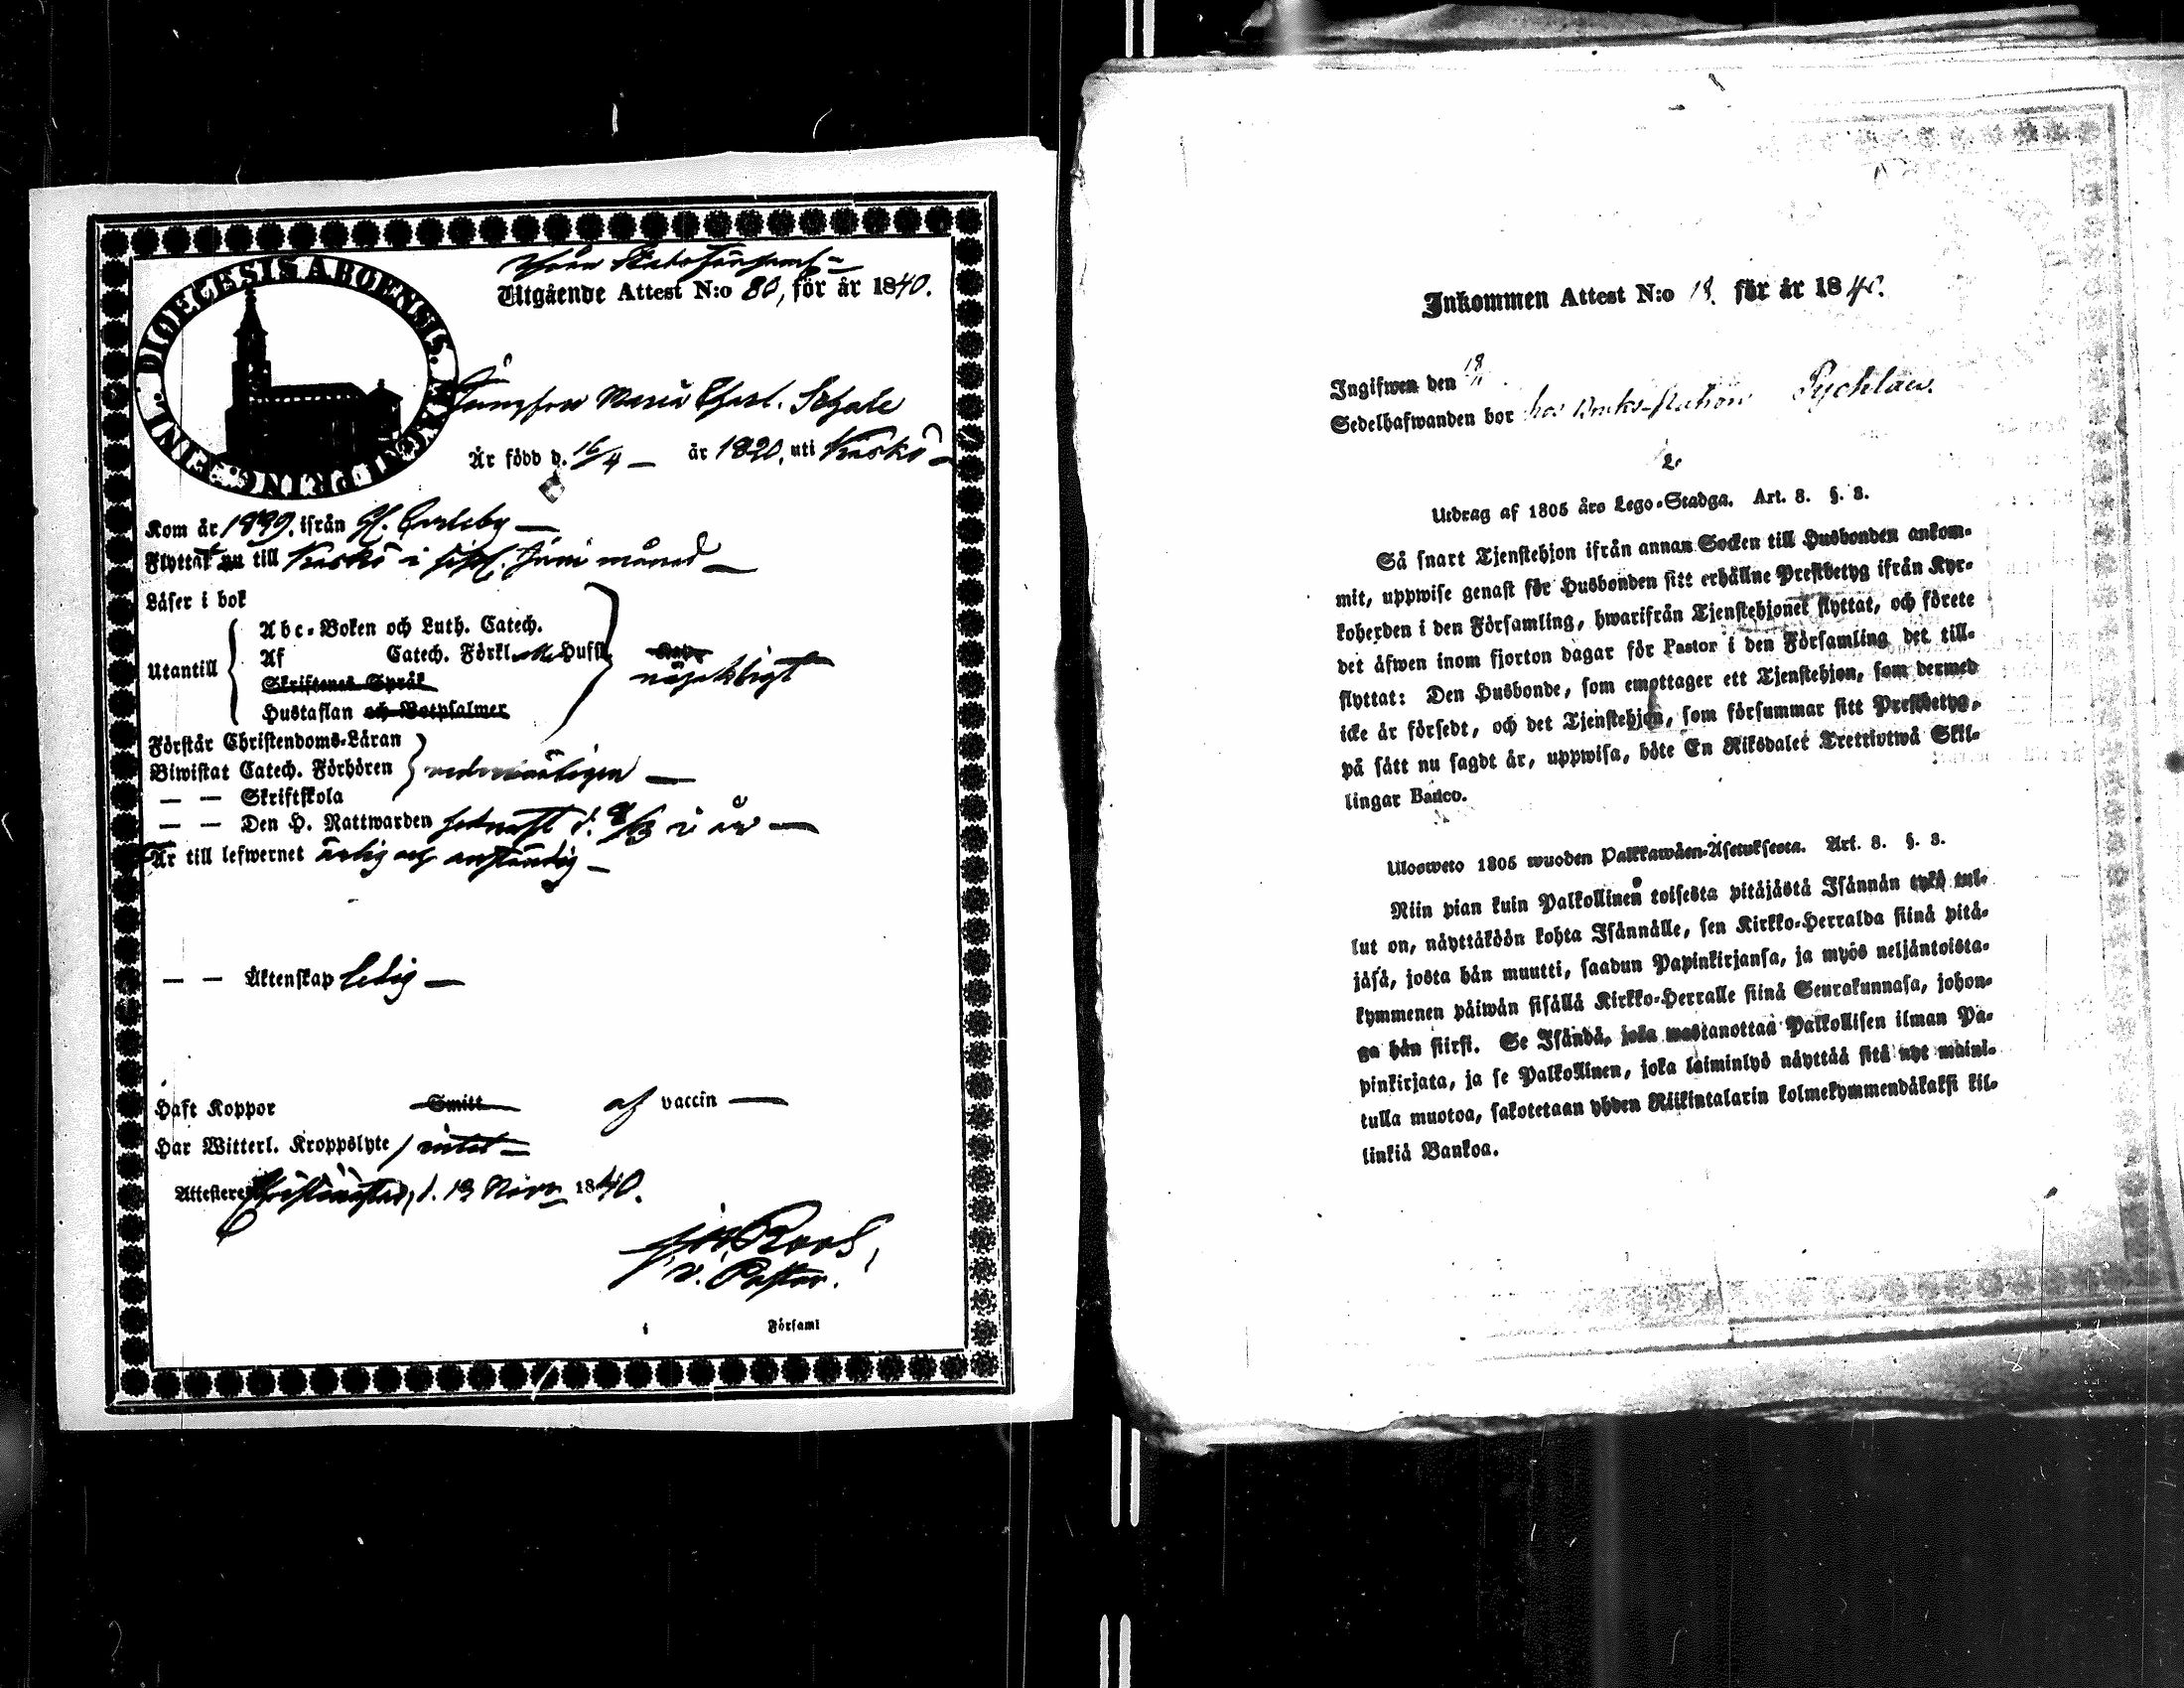 DIOECESIS ABOENSIS. MAGNI PRINC. FENNL.
från Stadsförsaml:
Utgående Attest N:o 80, för år 1840.
Jungfru Maria Charl.
Är född d. 16/4 — år 1820, uti Kaskö
Kom år 1839. ifrån Gl. Carleby —
Flyttat nu till Kaskö i sistl. Juni månad —
Läser i bok
Utantill
Abc-Boken och Luth. Catech.
Af Catech. Förkl. Husfl.
Skriftenes Språk
Hustaflan och Botpsalmer
nöjaktigt
Förstår Christendoms-Läran
Biwistat Catech. Förhören
vederbörligen —
— — Skriftskola
— — Den H. Nattwarden sednast d. 8/3 i år —
Är till lefwernet ärlig och anständig —
— — Äktenskap ledig —
Haft Koppor Smitt af vaccin —
Har Witterl. Kroppslyte / intet —
Attesterer Christinestad, d. 13 Nov. 1840.
Roos,
v. Pastor.
i Församl
Inkommen Attest N:o 18. för år 1840.
Ingifwen den
Sedelhafwanden bor hos Pychlau.
Utdrag af 1805 års Lego-Stadga. Art. 8. §. 8.
Så snart Tjenstehjon ifrån annan Socken till Husbonden ankom-
mit, uppwise genast för Husbonden sitt erhållne Prestbetyg ifrån Kyr-
koherden i den Församling, hwarifrån Tjenstehjonet flyttat, och förete
det äfwen inom fjorton dagar för Pastor i den Församling det till-
flyttat: Den Husbonde, som emottager ett Tjenstehjon, som dermed
icke är försedt, och det Tjenstehjon, som försummar sitt Prestbetyg,
på sätt nu sagdt är, uppwisa, böte En Riksdaler Tretriotwå Skil-
lingar Banco.
Ulosweto 1805 wuoden Palkkawäen-Asetuksesta. Art. 8. §. 8.
Niin pian kuin Palkollinen toisesta pitäjästä Isännän tykö tul-
lut on, näyttäköön kohta Isännälle, sen Kirkko-Herralda siinä pitä-
jäsä, josta hän muutti, saadun Papinkirjansa, ja myös neljäntoista-
kymmenen päiwän sisällä Kirkko-Herralle siinä Seurakunnasa, johon-
ga hän siirsi. Se Isändä, joka wastanottaa Palkollisen ilman Pa-
pinkirjata, ja se Palkollinen, joka laiminlyö näyttää sitä nyt maini-
tulla muotoa, sakotetaan yhden Riikintalarin kolmekymmendäkaksi kil-
linkiä Bankoa.